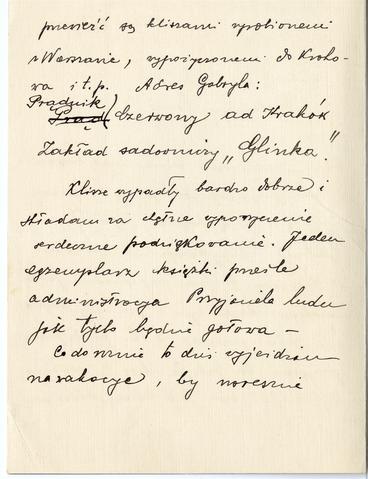 przewieźć się kliszami wyrobionemi
w Warszawie, wypożyczonemi do Krako-
wa i t. p. Adres Gabryla:
Prądnik
Prąd Czerwony ad Kraków
Zakład sadowniczy „Glinka”.
Klisze wypadły bardzo dobrze i
składam za chętne wypożyczenie
serdeczne podziękowanie. Jeden
egzemplarz książki prześle
administracya Przyjaciela ludu
jak tylko będzie gotowa —
Co do mnie to dziś wyjeżdżam
na wakacye, by nareszcie